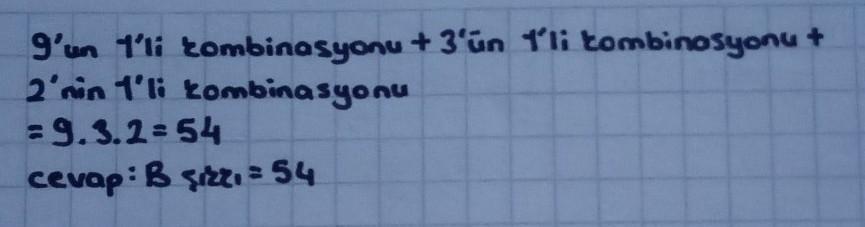 9'un 1'li kombinasyonu + 3'ün 1'li kombinasyonu +
2'nin 1'li kombinasyonu
= 9.3.2 = 54
cevap: B şıkkı = 54